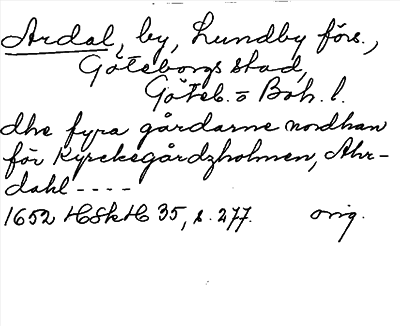 Ardal, by, Lundby förs.,
Göteborgs stad,
Göteb. o Boh. l.
dhe fyra gårdarne nordhan
för Kyrckegårdzholmen, Ahr-
dahl ----
1652 HSkH 35, s. 277. orig.